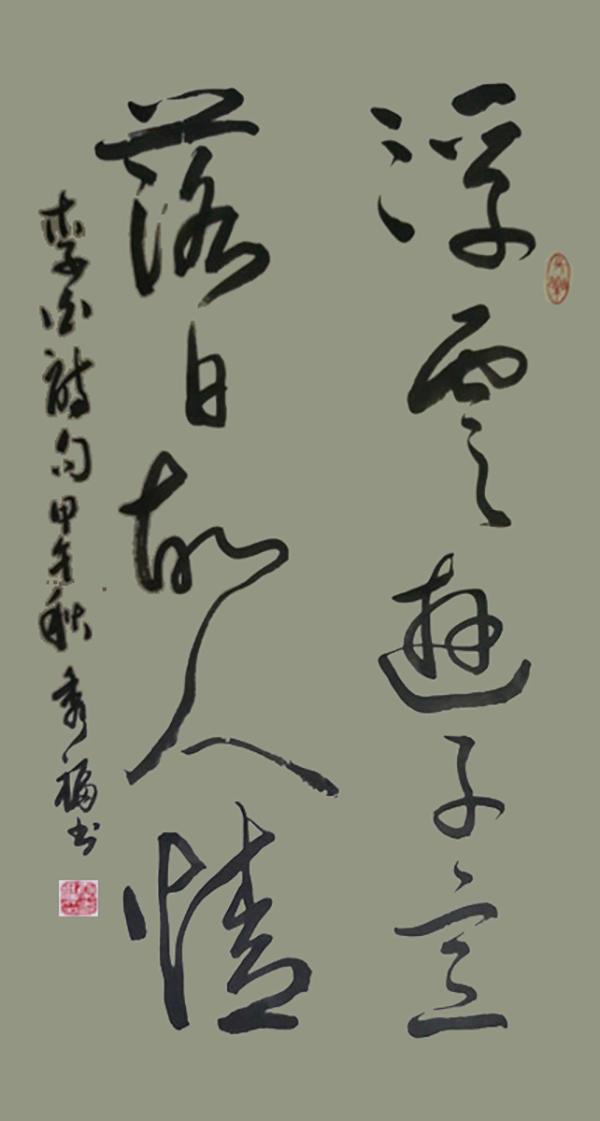 浮雲遊子意
落日故人情
李白詩句甲午秋秀福书